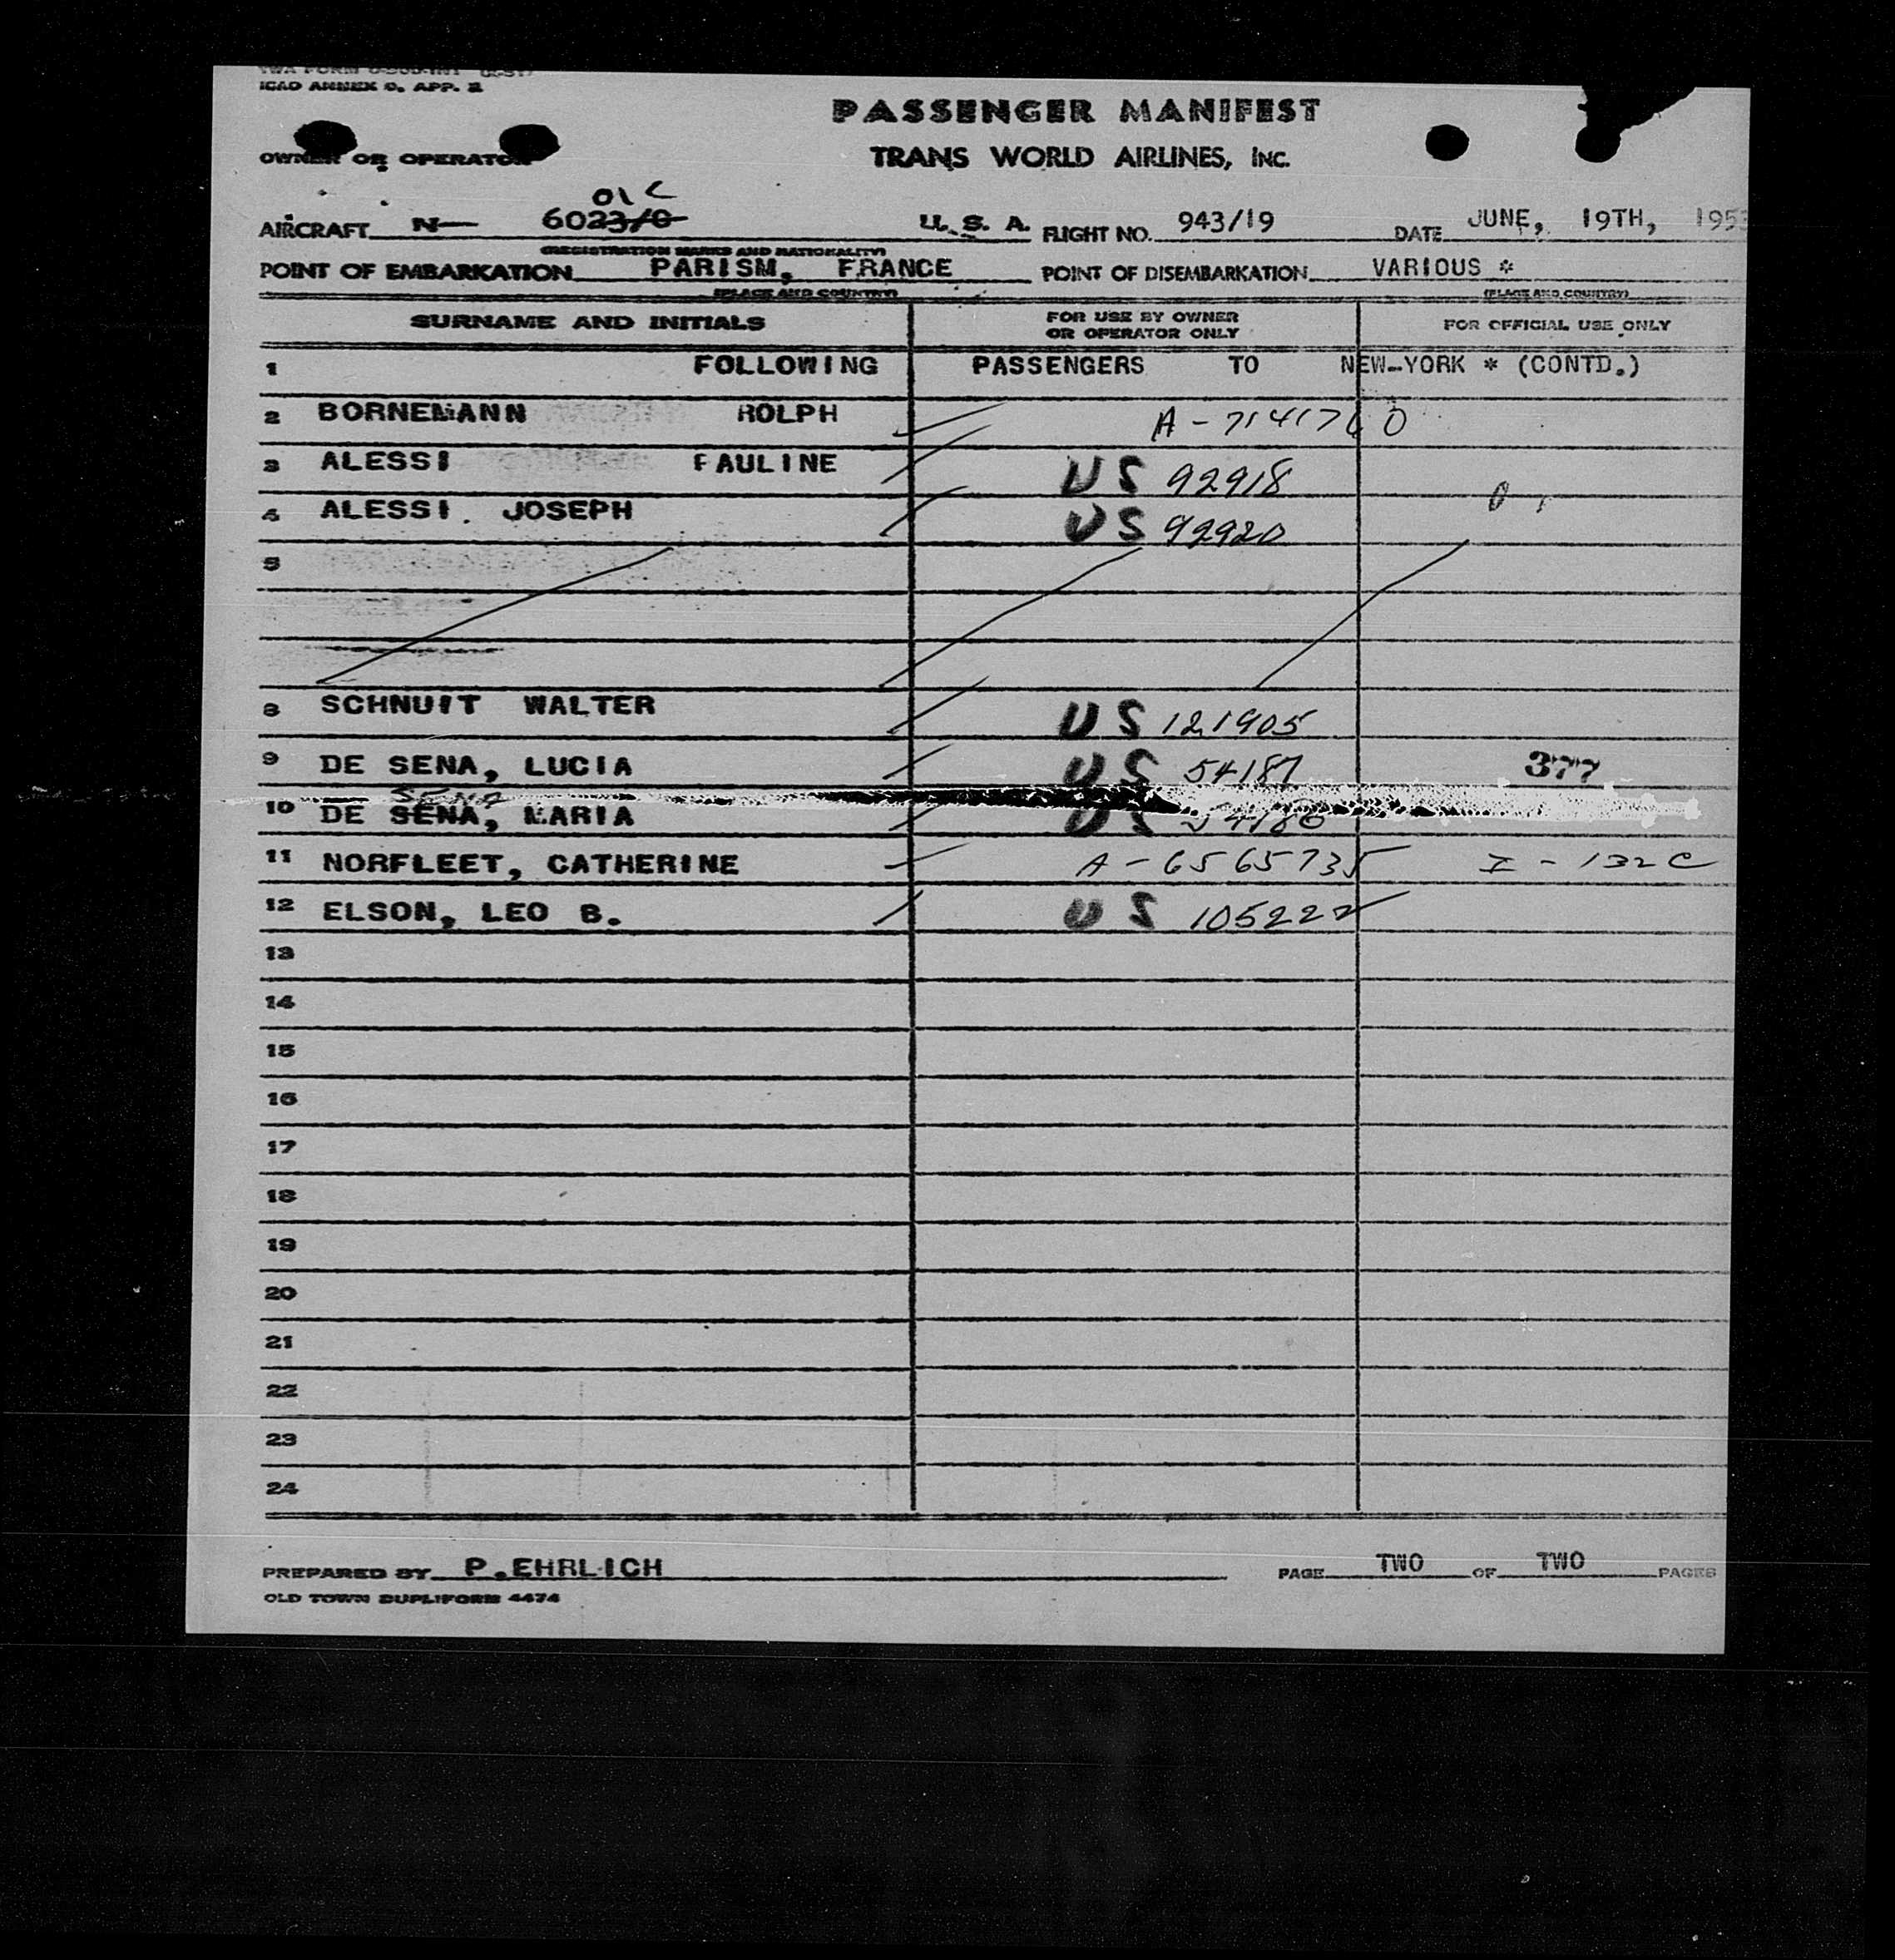 ICAO ANNEX 9, APP. 2
PASSENGER MANIFEST
OWNER OR OPERATOR
TRANS WORLD AIRLINES, INC.
01C
AIRCRAFT N- 6023/0 U. S. A. FLIGHT NO. 943/19 DATE JUNE, 19TH, 195
(REGISTRATION MARKS AND NATIONALITY)
POINT OF EMBARKATION PARISM, FRANCE POINT OF DISEMBARKATION VARIOUS *
(PLACE AND COUNTRY) (PLACE AND COUNTRY)
SURNAME AND INITIALS FOR USE BY OWNER OR OPERATOR ONLY FOR OFFICIAL USE ONLY
1 FOLLOWING PASSENGERS TO NEW-YORK * (CONTD.)
2 BORNEMANN ROLPH A-7141760
3 ALESSI PAULINE US 92918
4 ALESSI. JOSEPH US 92920
5
8 SCHNUIT WALTER US 121905
9 DE SENA, LUCIA US 54187 377
SENA
10 DE SENA, MARIA US 54186
11 NORFLEET, CATHERINE A-6565735 I-132C
12 ELSON, LEO B. US 105222
13
14
15
16
17
18
19
20
21
22
23
24
PREPARED BY P.EHRLICH PAGE TWO OF TWO PAGES
OLD TOWN DUPLIFORM 4474